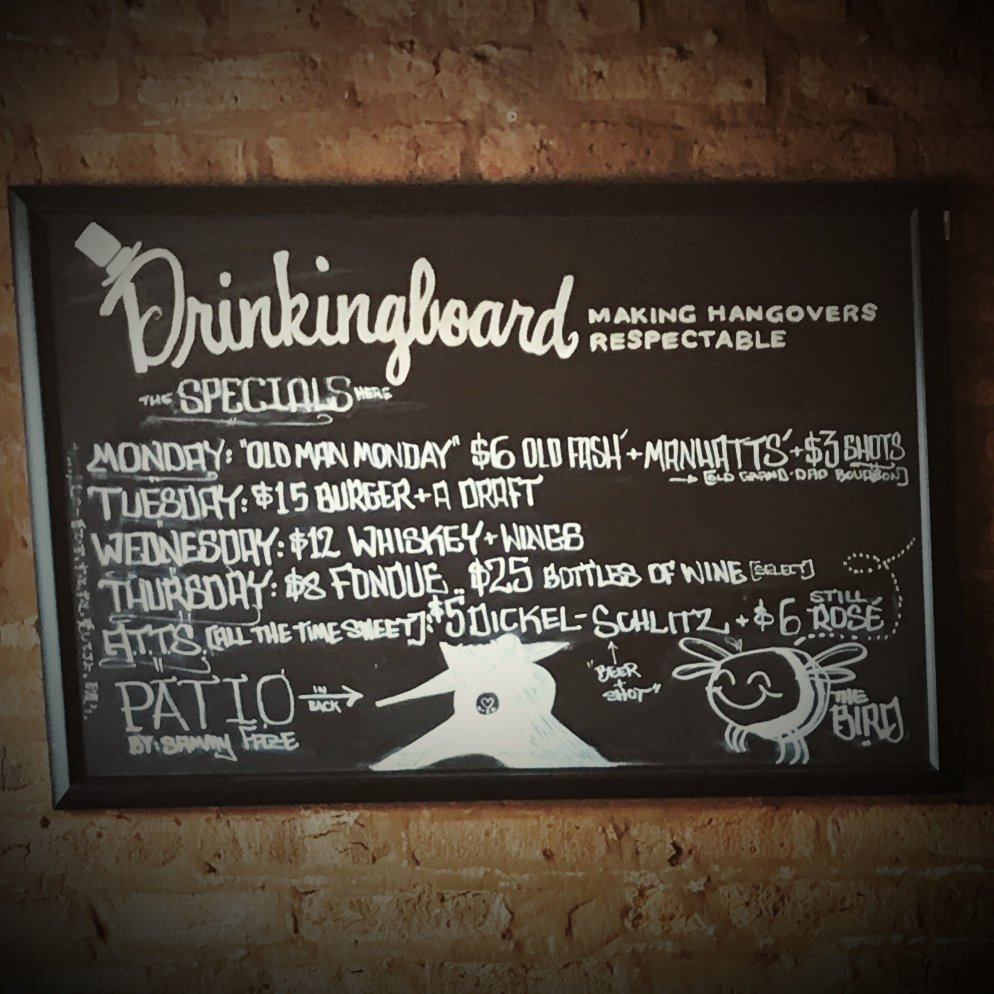 Drinkingboard
MAKING HANGOVERS
RESPECTABLE
THE SPECIALS HERE
MONDAY: "OLD MAN MONDAY" $6 OLD FASH' + MANHATTS' + $3 SHOTS
→ [OLD GRAND-DAD BOURBON]
TUESDAY: $15 BURGER + A DRAFT
WEDNESDAY: $12 WHISKEY + WINGS
THURSDAY: $8 FONDUE.. $25 BOTTLES OF WINE [SELECT]
ATTS. [ALL THE TIME SWEET]: $5 DICKEL-SCHLITZ + $6 STILL ROSÉ
"BEER + SHOT"
PATIO IN BACK →
BY: SAMMY FAZE
THE BIRD